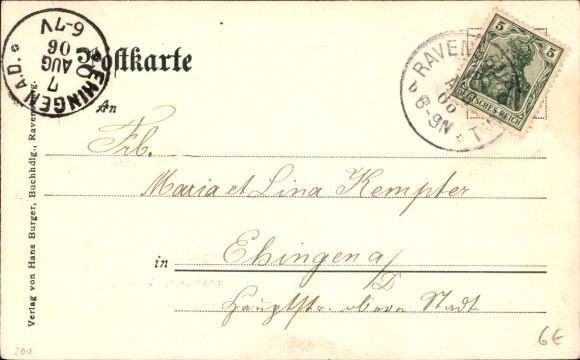 Postkarte
EHINGEN A.D.
7
AUG
06
6-7V
RAVENSBURG
AUG
06
6-9N
5 5
DEUTSCHES REICH
An
Frl.
Maria et Lina Kempter
in Ehingen a/D
Hauptstr. obere Stadt
Verlag von Hans Burger, Buchhdlg., Ravensburg.
200
6€